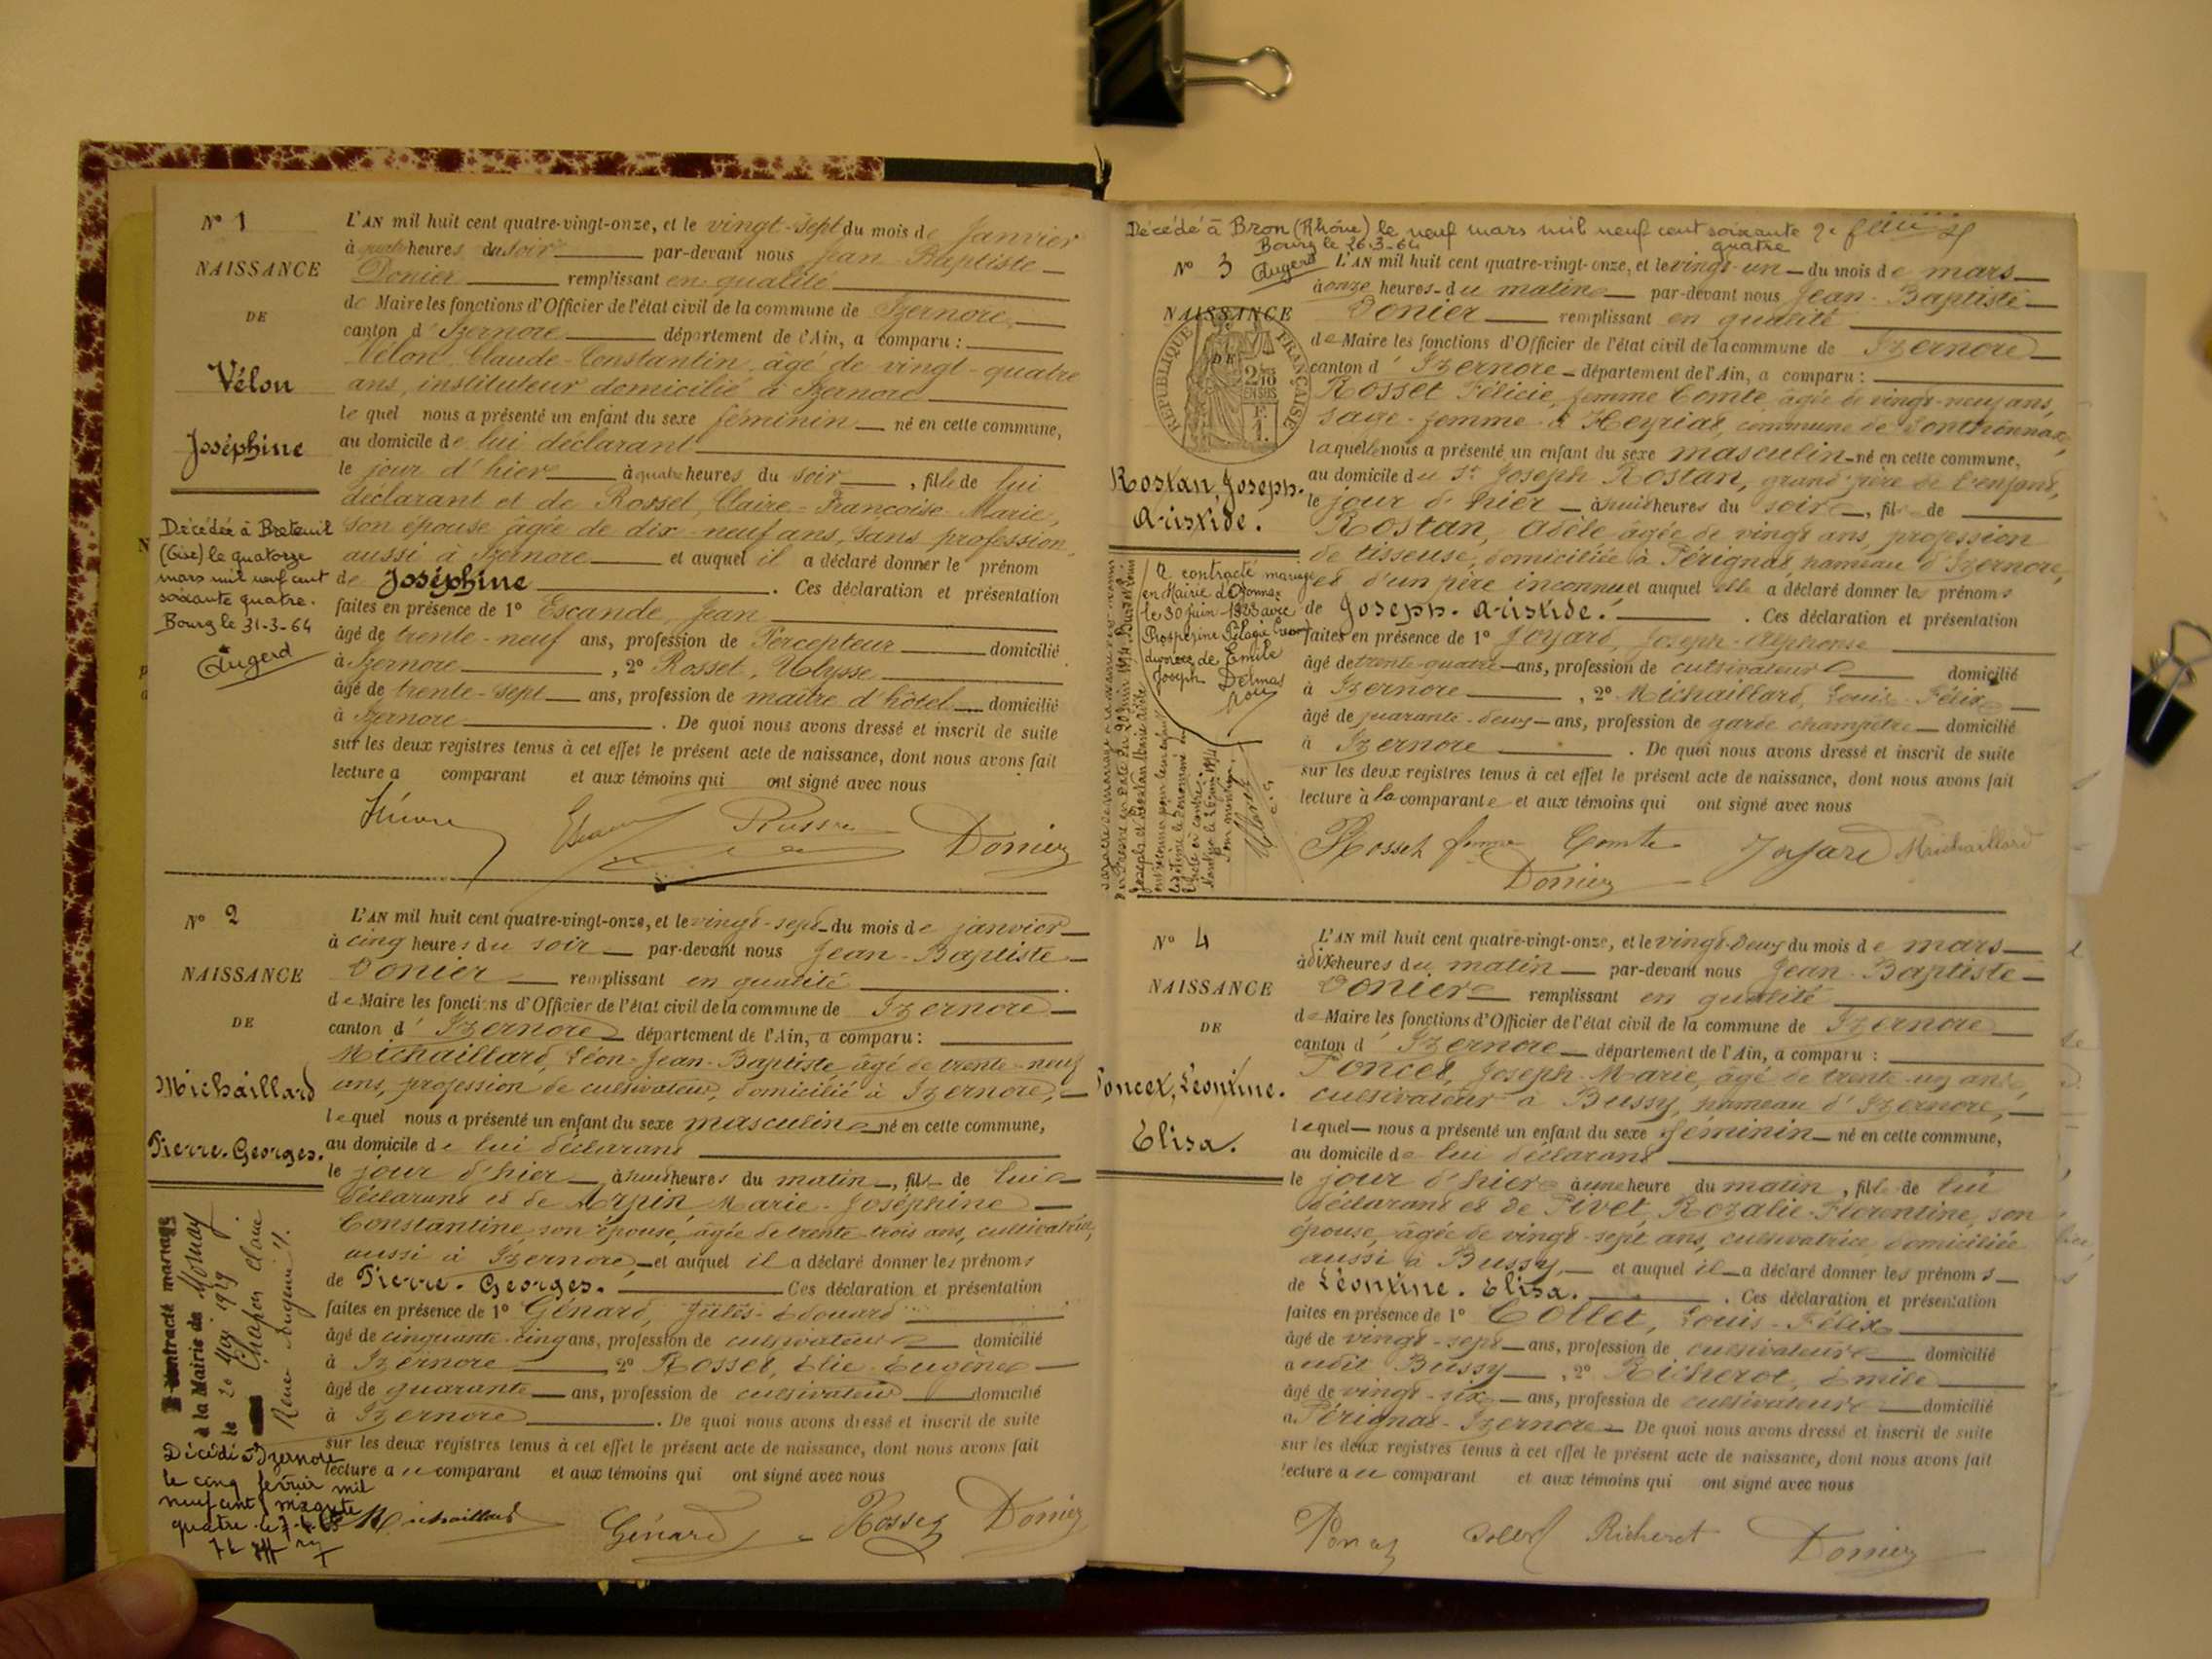 N° 1
NAISSANCE
DE
Vélon
Joséphine
Décédée à Breteuil
(Oise) le quatorze
mars mil neuf cent
soixante quatre.
Bourg le 31-3-64
Augerd
L'AN mil huit cent quatre-vingt-onze, et le vingt-sept du mois de Janvier
à heures du soir par-devant nous Jean-Baptiste
Donier remplissant en qualité
de Maire les fonctions d'Officier de l'état civil de la commune de Izernore
canton d'Izernore département de l'Ain, a comparu :
Vélon Claude-Constantin âgé de vingt-quatre
ans, instituteur domicilié à Izernore
le quel nous a présenté un enfant du sexe féminin né en cette commune,
au domicile de lui déclarant
le jour d'hier à quatre heures du soir, fille de lui
déclarant et de Rosset, Claire-Françoise-Marie,
son épouse âgée de dix-neuf ans, sans profession,
aussi à Izernore et auquel il a déclaré donner le prénom
de Joséphine. Ces déclaration et présentation
faites en présence de 1° Escande, Jean
âgé de trente-neuf ans, profession de Percepteur domicilié
à Izernore, 2° Rosset, Ulysse
âgé de trente-sept ans, profession de maître d'hôtel domicilié
à Izernore. De quoi nous avons dressé et inscrit de suite
sur les deux registres tenus à cet effet le présent acte de naissance, dont nous avons fait
lecture a comparant et aux témoins qui ont signé avec nous
Donier
N° 2
NAISSANCE
DE
Michaillard
Pierre-Georges.
A contracté mariage
à la Mairie de
le 20 1939
Chapon Claire
Décédé à Izernore
le cinq février mil
neuf cent soixante
quatre
L'AN mil huit cent quatre-vingt-onze, et le vingt-sept du mois de janvier
à cinq heures du soir par-devant nous Jean-Baptiste
Donier remplissant en qualité
de Maire les fonctions d'Officier de l'état civil de la commune de Izernore
canton d'Izernore département de l'Ain, a comparu :
Michaillard, Léon-Jean-Baptiste, âgé de trente-neuf
ans, profession de cultivateur, domicilié à Izernore,
lequel nous a présenté un enfant du sexe masculin né en cette commune,
au domicile de lui déclarant
le jour d'hier à huit heures du matin, fils de lui
déclarant et de Arpin, Marie-Joséphine
Constantine, son épouse, âgée de trente-trois ans, cultivatrice,
aussi à Izernore, et auquel il a déclaré donner les prénoms
de Pierre-Georges. Ces déclaration et présentation
faites en présence de 1° Génard, Jules-Edouard
âgé de cinquante-cinq ans, profession de cultivateur domicilié
à Izernore, 2° Rosset, Elie-Eugène
âgé de quarante ans, profession de cultivateur domicilié
à Izernore. De quoi nous avons dressé et inscrit de suite
sur les deux registres tenus à cet effet le présent acte de naissance, dont nous avons fait
lecture au comparant et aux témoins qui ont signé avec nous
Michaillard Génard Rosset Donier
Décédé à Bron (Rhône) le neuf mars mil neuf cent soixante
quatre
Bourg le 26-3-64
Augerd
2e feuille
N° 3
NAISSANCE
DE
RÉPUBLIQUE FRANÇAISE
Rostan, Joseph-
Aristide.
A contracté mariage
en Mairie d'Oyonnax
le 30 Juin 1923 avec
Prospérine Pélagie
divorcée de Emile
Joseph Delmas
L'AN mil huit cent quatre-vingt-onze, et le vingt-un du mois de mars
à onze heures du matin par-devant nous Jean-Baptiste
Donier remplissant en qualité
de Maire les fonctions d'Officier de l'état civil de la commune de Izernore
canton d'Izernore département de l'Ain, a comparu :
Rosset Félicie, femme Comte, âgée de vingt-neuf ans,
sage-femme à Heyriat, commune de Sonthonnax,
laquelle nous a présenté un enfant du sexe masculin né en cette commune,
au domicile du Sr Joseph Rostan, grand'père de l'enfant,
le jour d'hier à huit heures du soir, fils de
Rostan, Adèle âgée de vingt ans, profession
de tisseuse, domiciliée à Pérignat hameau d'Izernore,
et d'un père inconnu et auquel elle a déclaré donner les prénoms
de Joseph-Aristide. Ces déclaration et présentation
faites en présence de 1° Joyard, Joseph-Alphonse
âgé de trente-quatre ans, profession de cultivateur domicilié
à Izernore, 2° Michaillard, Louis-Félix
âgé de quarante-deux ans, profession de garde champêtre domicilié
à Izernore. De quoi nous avons dressé et inscrit de suite
sur les deux registres tenus à cet effet le présent acte de naissance, dont nous avons fait
lecture à la comparante et aux témoins qui ont signé avec nous
Rosset femme Comte Joyard Michaillard
Donier
N° 4
NAISSANCE
DE
Poncet, Léontine.
Elisa.
L'AN mil huit cent quatre-vingt-onze, et le vingt-deux du mois de mars
à dix heures du matin par-devant nous Jean-Baptiste
Donier remplissant en qualité
de Maire les fonctions d'Officier de l'état civil de la commune de Izernore
canton d'Izernore département de l'Ain, a comparu :
Poncet, Joseph-Marie, âgé de trente-un ans,
cultivateur à Bussy, hameau d'Izernore,
lequel nous a présenté un enfant du sexe féminin né en cette commune,
au domicile de lui déclarant
le jour d'hier à une heure du matin, fille de lui
déclarant et de Pivet, Rozalie-Florentine, son
épouse, âgée de vingt-sept ans, cultivatrice, domiciliée
aussi à Bussy, et auquel il a déclaré donner les prénoms
de Léontine. Elisa. Ces déclaration et présentation
faites en présence de 1° Collet, Louis-Félix
âgé de vingt-sept ans, profession de cultivateur domicilié
audit Bussy, 2° Richerot, Emile
âgé de vingt-six ans, profession de cultivateur domicilié
à Pérignat-Izernore De quoi nous avons dressé et inscrit de suite
sur les deux registres tenus à cet effet le présent acte de naissance, dont nous avons fait
lecture au comparant et aux témoins qui ont signé avec nous
Poncet Collet Richerot Donier